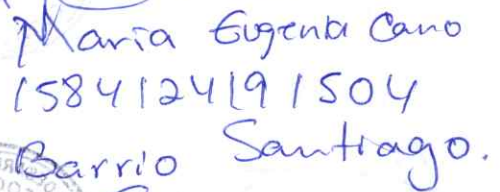 Maria Eugenia Cano
1584124191504
Barrio Santiago.